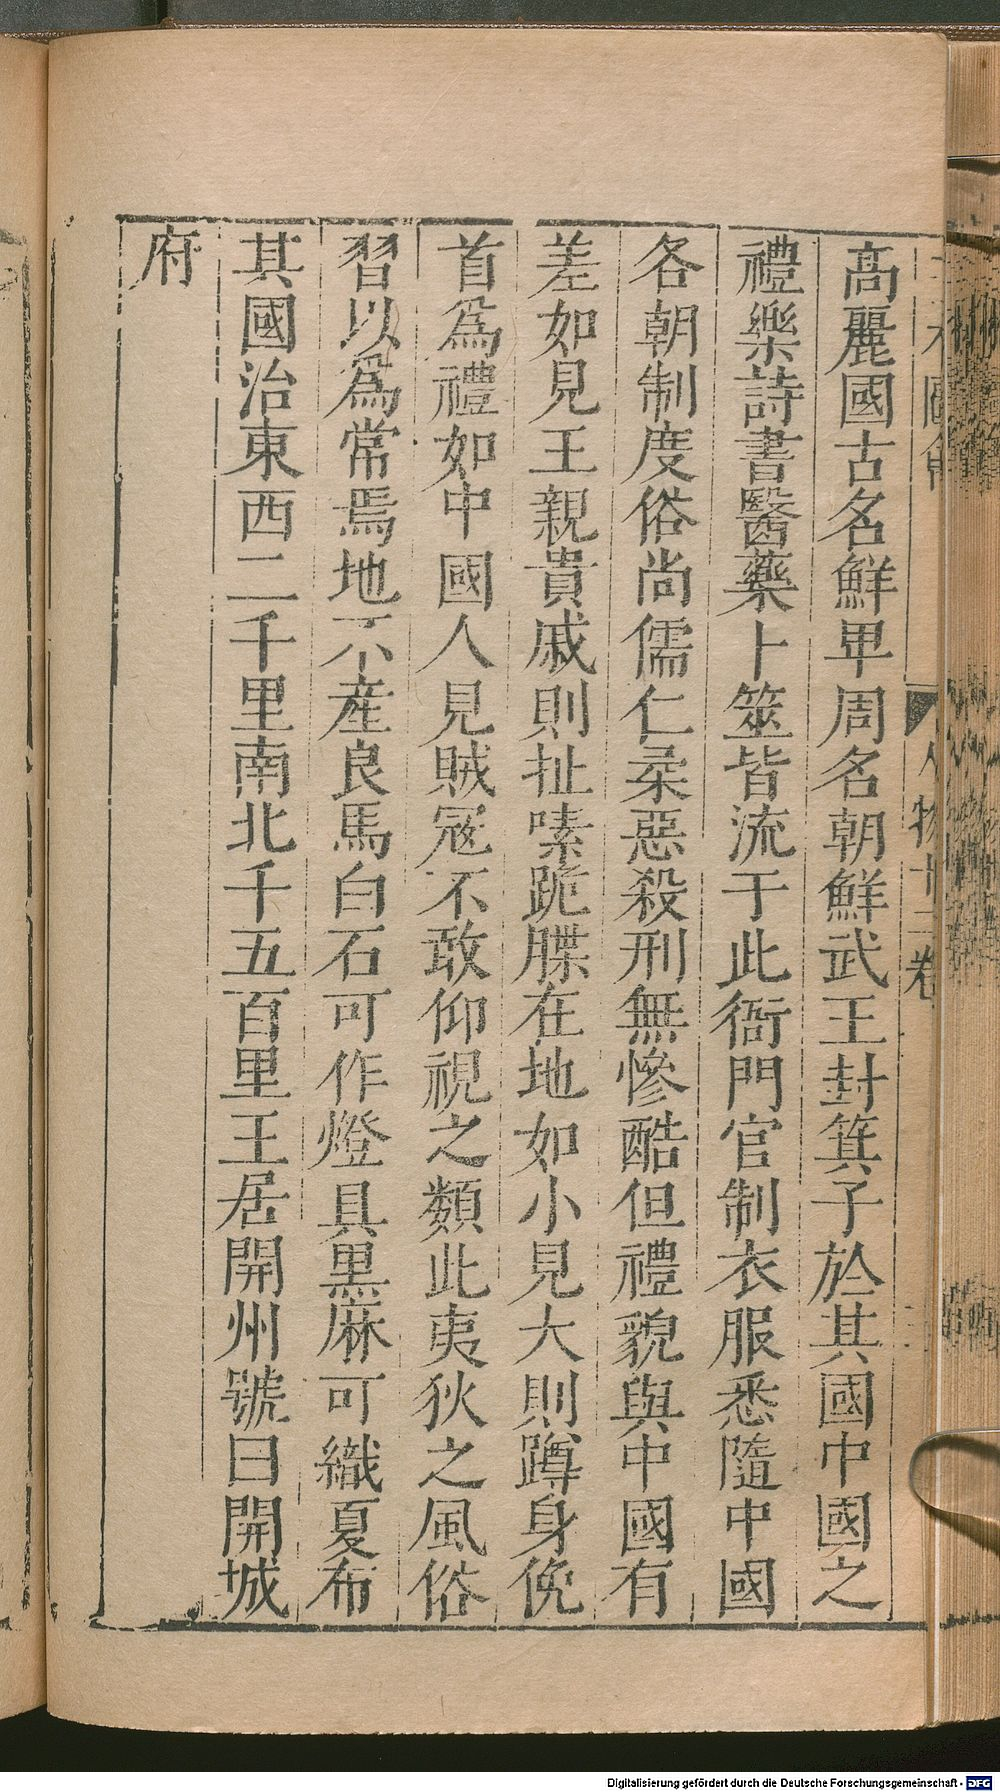 高麗國古名鮮卑周名朝鮮武王封箕子於其國中國之
禮樂詩書醫藥卜筮皆流于此衙門官制衣服悉隨中國
各朝制度俗尚儒仁柔惡殺刑無慘酷但禮貌與中國有
差如見王親貴戚則扯嗉跪腜在地如小見大則蹲身俛
首爲禮如中國人見賊冦不敢仰視之類此夷狄之風俗
習以爲常焉地不產良馬白石可作燈具黒麻可織夏布
其國治東西二千里南北千五百里王居開州號曰開城
府
人物十二卷
Digitalisierung gefördert durch die Deutsche Forschungsgemeinschaft - DFG